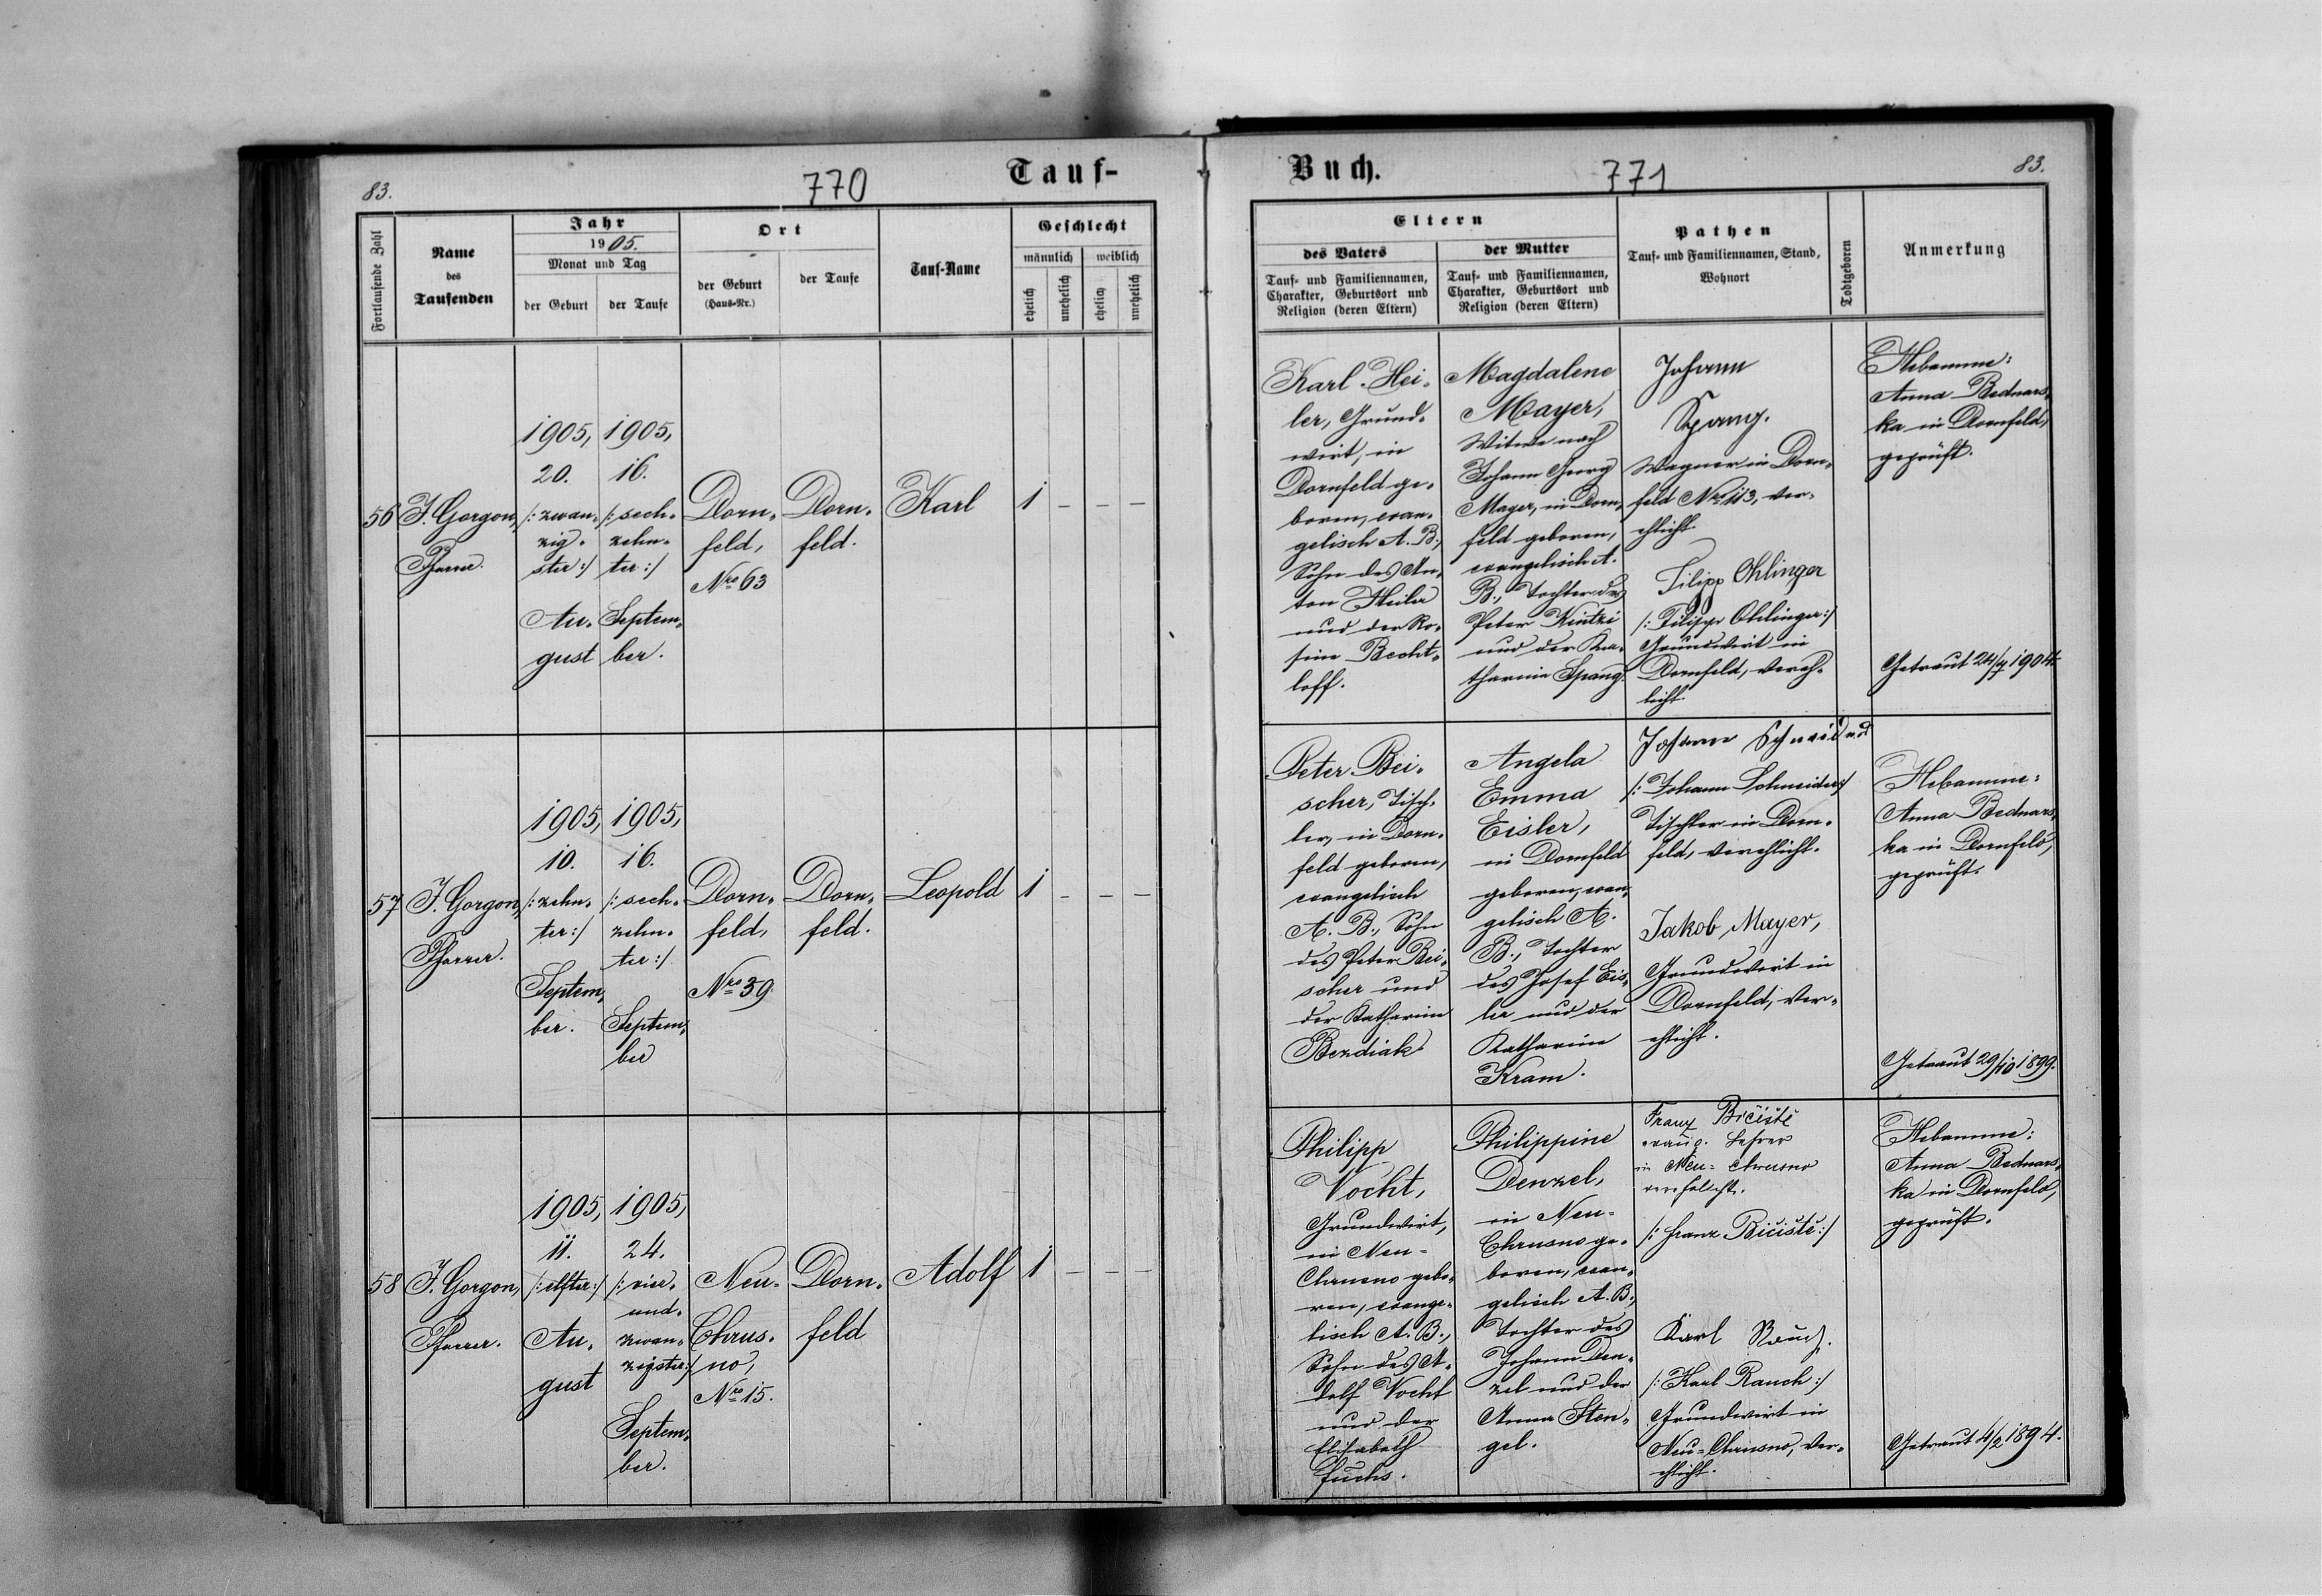 83.
770
Tauf-
Fortlaufende Zahl
Name
des
Taufenden
Jahr
1905.
Monat und Tag
der Geburt
der Taufe
Ort
der Geburt
(Haus-Nr.)
der Taufe
Tauf-Name
Geschlecht
männlich
weiblich
ehelich
unehelich
ehelich
unehelich
56
J. Gorgon,
Pfarrer.
1905,
20.
/: zwan-
zig-
ster :/
Au-
gust
1905,
16.
/: sech-
zehn-
ter :/
Septem-
ber.
Dorn-
feld,
Nro 63
Dorn-
feld.
Karl
1
–
–
–
57
J. Gorgon,
Pfarrer.
1905,
10.
/: zehn-
ter :/
Septem-
ber.
1905,
16.
/: sech-
zehn-
ter :/
Septem-
ber
Dorn-
feld,
Nro 39
Dorn-
feld.
Leopold
1
–
–
–
58
J. Gorgon,
Pfarrer.
1905,
11.
/: elfter :/
Au-
gust
1905,
24.
/: vier-
und-
zwan-
zigster :/
Septem-
ber.
Neu-
Chrus-
no,
Nro 15.
Dorn-
feld
Adolf
1
–
–
–
Buch.
771
83.
Eltern
des Vaters
Tauf- und Familiennamen,
Charakter, Geburtsort und
Religion (deren Eltern)
der Mutter
Tauf- und Familiennamen,
Charakter, Geburtsort und
Religion (deren Eltern)
Pathen
Tauf- und Familiennamen, Stand,
Wohnort
Todtgeboren
Anmerkung
Karl Hei-
ler, Grund-
wirt, in
Dornfeld ge-
boren, evan-
gelisch A. B.,
Sohn des An-
ton Heiler
und der Ro-
sine Becht-
loff.
Magdalene
Mayer,
Witwe nach
Johann Georg
Mayer, in Dorn-
feld geboren,
evangelisch A.
B., Tochter des
Peter Kintzi
und der Ka-
tharina Spang.
Johann
Spang.
Wagner in Dorn-
feld Nro 113, ver-
ehlicht.
Filipp Ohlinger
/: Filipp Ohlinger :/
Grundwirt in
Dornfeld, vereh-
licht.
Hebamme:
Anna Bednars-
ka in Dornfeld,
geprüft.
Getraut 24/4 1904.
Peter Bei-
scher, Tisch-
ler, in Dorn-
feld geboren,
evangelisch
A. B., Sohn
des Peter Bei-
scher und
der Katharina
Bezdiak
Angela
Emma
Eisler,
in Dornfeld
geboren, evan-
gelisch A.
B., Tochter
des Josef Eis-
ler und der
Katharine
Kram.
Johann Schneider
/: Johann Schneider :/
Tischler in Dorn-
feld, verehlicht.
Jakob Mayer,
Grundwirt in
Dornfeld, ver-
ehlicht.
Hebamme:
Anna Bednars-
ka in Dornfeld,
geprüft.
Getraut 29/10 1899.
Philipp
Vocht,
Grundwirt,
in Neu-
Chrusno gebo-
ren, evange-
lisch A. B.,
Sohn des A-
dolf Vocht
und der
Elisabeth
Fuchs.
Philippine
Denzel,
in Neu-
Chrusno ge-
boren, evan-
gelisch A. B.,
Tochter des
Johann Den-
zel und der
Anna Sten-
gel.
Franz Bičište
evang. Lehrer
in Neu-Chrusno
verehlicht.
/: Franz Bičište :/
Karl Rauch.
/: Karl Rauch :/
Grundwirt in
Neu-Chrusno, ver-
ehlicht.
Hebamme:
Anna Bednars-
ka in Dornfeld,
geprüft.
Getraut 4/2 1894.